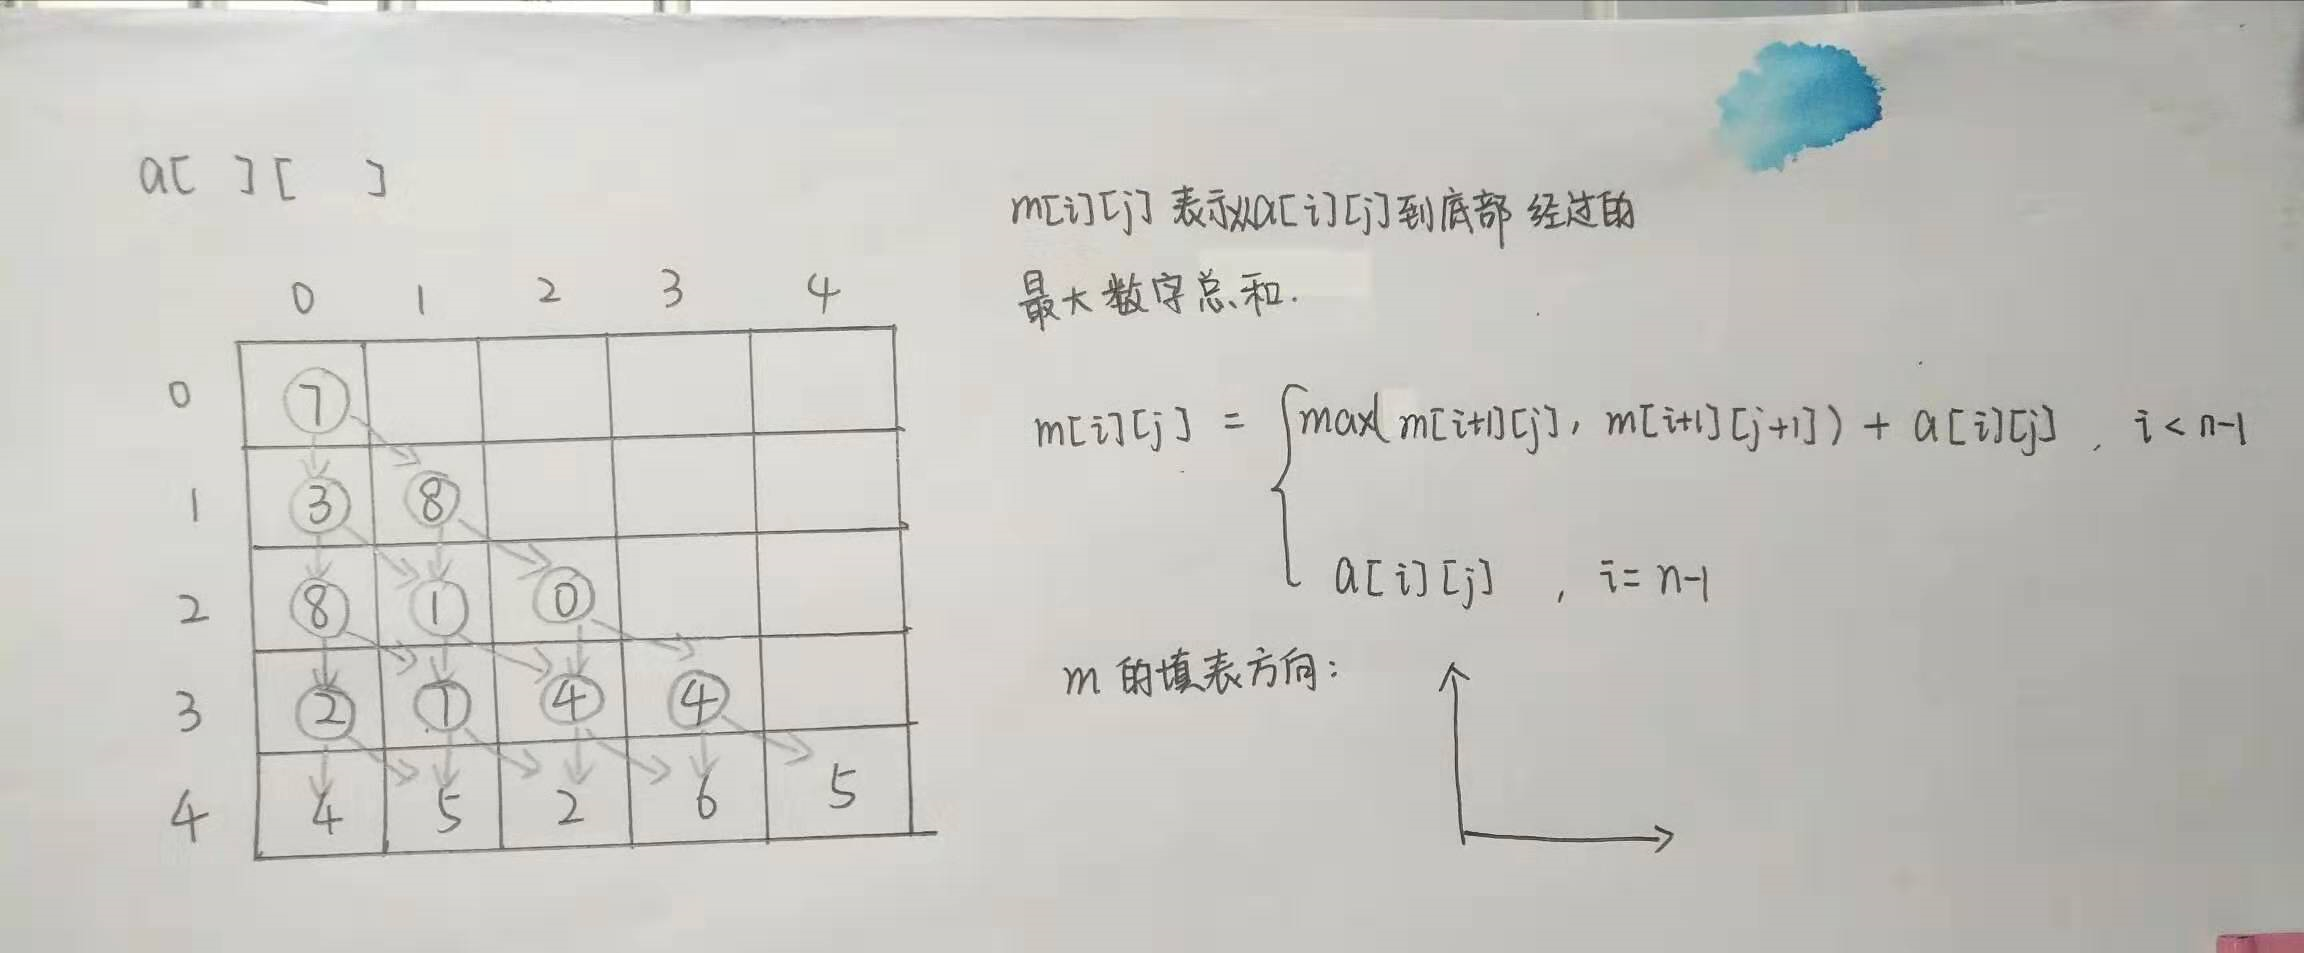 a[ ][ ]
0 1 2 3 4
0 7
1 3 8
2 8 1 0
3 2 7 4 4
4 4 5 2 6 5
m[i][j] 表示从a[i][j]到底部 经过的
最大数字总和.
m[i][j] = { max( m[i+1][j], m[i+1][j+1]) + a[i][j] , i < n-1
a[i][j] , i = n-1
m 的填表方向: